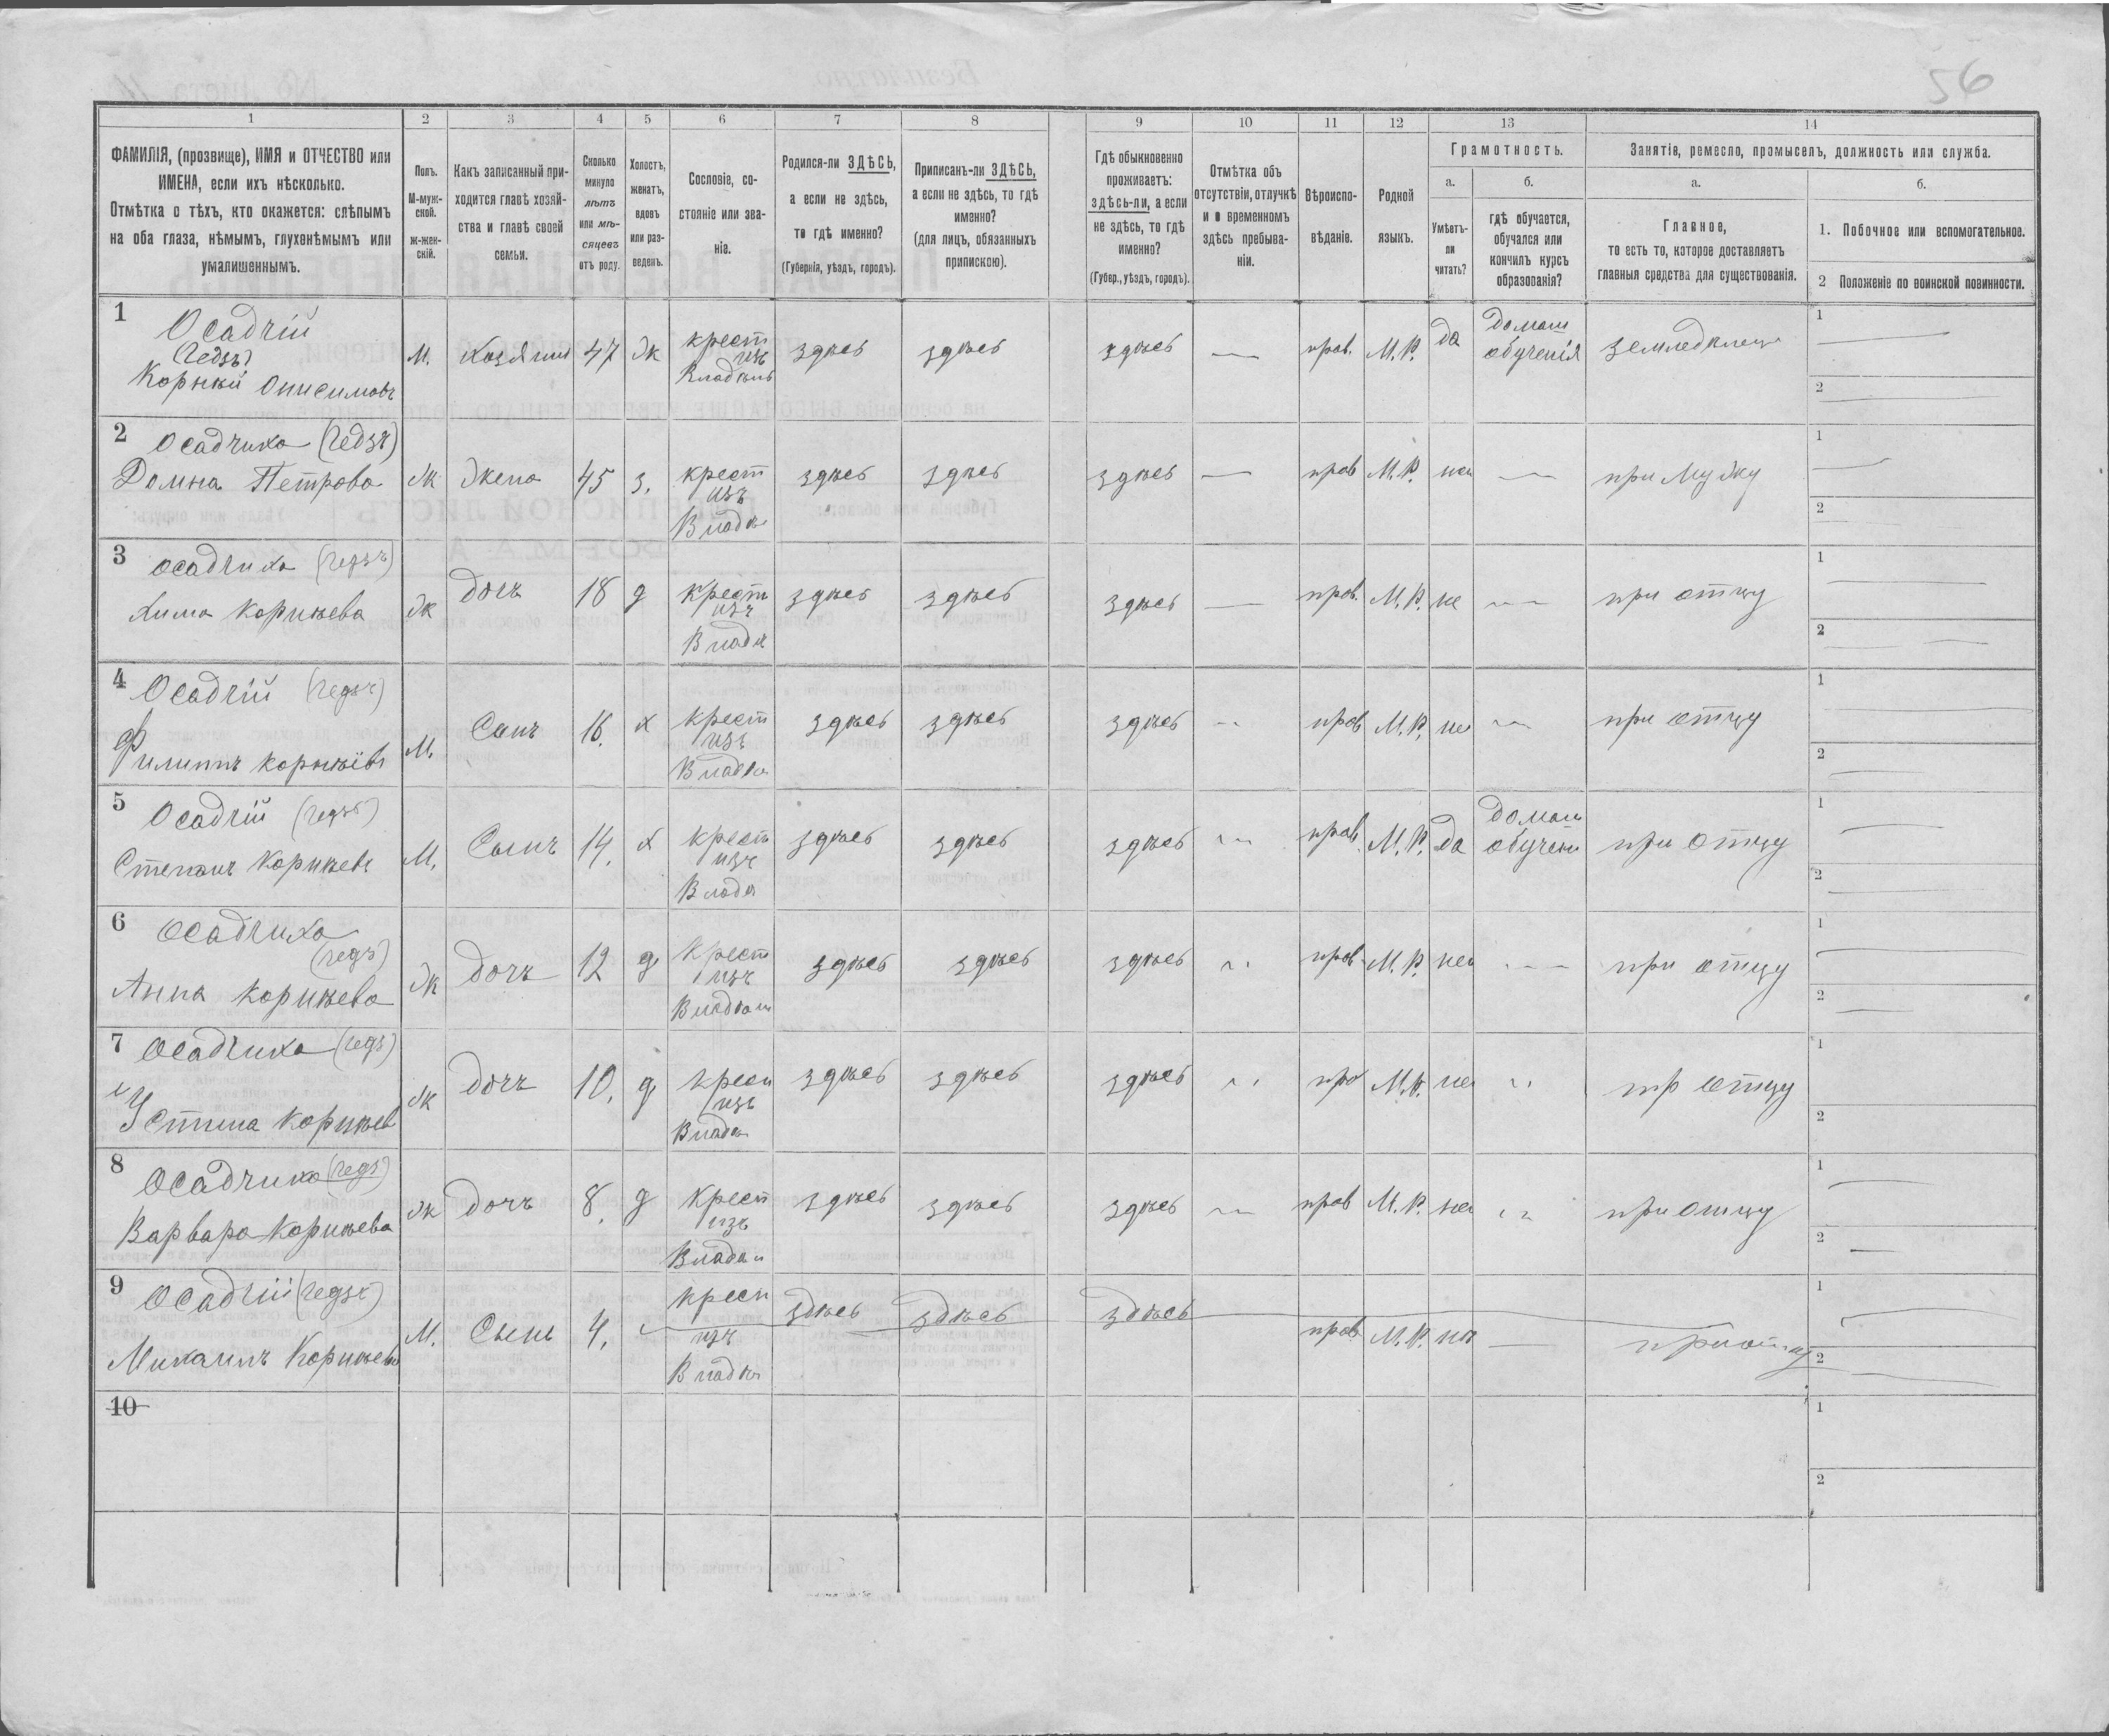 56
1 2 3 4 5 6 7 8 9 10 11 12 13 14
ФАМИЛІЯ, (прозвище), ИМЯ и ОТЧЕСТВО или
ИМЕНА, если ихъ нѣсколько.
Отмѣтка о тѣхъ, кто окажется: слѣпымъ
на оба глаза, нѣмымъ, глухонѣмымъ или
умалишеннымъ.
Полъ.
М-муж-
ской.
ж-жен-
скій.
Какъ записанный при-
ходится главѣ хозяй-
ства и главѣ своей
семьи.
Сколько
минуло
лѣтъ
или мѣ-
сяцевъ
отъ роду.
Холостъ,
женатъ,
вдовъ
или раз-
веденъ.
Сословіе, со-
стояніе или зва-
ніе.
Родился-ли ЗДѢСЬ,
а если не здѣсь,
то гдѣ именно?
(Губернія, уѣздъ, городъ).
Приписанъ-ли ЗДѢСЬ,
а если не здѣсь, то гдѣ
именно?
(для лицъ, обязанныхъ
припискою).
Гдѣ обыкновенно
проживаетъ:
здѣсь-ли, а если
не здѣсь, то гдѣ
именно?
(Губер., уѣздъ, городъ).
Отмѣтка объ
отсутствіи, отлучкѣ
и о временномъ
здѣсь пребыва-
ніи.
Вѣроиспо-
вѣданіе.
Родной
языкъ.
Грамотность.
а.
Умѣетъ-
ли
читать?
б.
гдѣ обучается,
обучался или
кончилъ курсъ
образованія?
Занятіе, ремесло, промыселъ, должность или служба.
а.
Главное,
то есть то, которое доставляетъ
главныя средства для существованія.
б.
1. Побочное или вспомогательное.
2 Положеніе по воинской повинности.
1
Осадчій
(Гедзъ)
Корнѣй Онисимовъ
М. Хозяинъ 47 ж
крест
изъ
здѣсь здѣсь здѣсь — прав. М.Р. да
домаш
обученія
земледѣлец
1
2
2 Осадчиха (Гедзъ)
Домна Петрова
ж жена 45 з.
крест
изъ
Владѣ
здѣсь здѣсь здѣсь — прав М.Р. не — при мужу
1
2
3 Осадчиха (Гедзъ)
Хима Корнѣева
ж дочъ 18 д
крест
изъ
Влад
здѣсь здѣсь здѣсь — прав. М.Р. не — при отцу
1
2
4 Осадчій (Гедзъ)
Филиппъ Корнѣевъ
М. Сынъ 16. х
крест
изъ
Владѣ
здѣсь здѣсь здѣсь — прав М.Р. не — при отцу
1
2
5 Осадчій (Гедзъ)
Степанъ Корнѣевъ
М. Сынъ 14. х
крест
изъ
Владѣ
здѣсь здѣсь здѣсь — прав. М.Р. да
домаш
обучен
при отцу
1
2
6 Осадчиха
(Гедзъ)
Анна Корнѣева
ж дочъ 12 д
крест
изъ
здѣсь здѣсь здѣсь прав. М.Р. не — при отцу
1
2
7 Осадчиха (Гедз)
Устина Корнѣев
ж дочъ 10. д
крест
изъ
Владѣ
здѣсь здѣсь здѣсь пра М.Р. не пр отцу
1
2
8 Осадчиха (Гедз)
Варвара Корнѣева
ж дочъ 8. д
крест
изъ
здѣсь здѣсь здѣсь — прав М.Р. не при отцу
1
2
9 Осадчій (Гедзъ)
Михаилъ Корнѣевъ
М. Сынъ 4.
крест
изъ
Владѣ
здѣсь здѣсь здѣсь прав. М.Р. не — при отцу
1
2
10
1
2